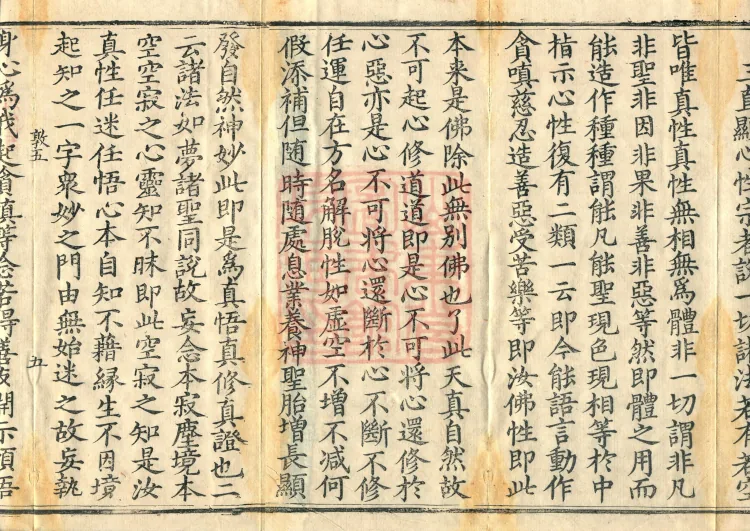 三直顯心性宗者說一切諸法若有若空
皆唯真性真性無相無為體非一切謂非凡
非聖非因非果非善非惡等然即體之用而
能造作種種謂能凡能聖現色現相等於中
指示心性復有二類一云即今能語言動作
貪嗔慈忍造善惡受苦樂等即汝佛性即此
本来是佛除此無別佛也了此天真自然故
不可起心修道道即是心不可將心還修於
心惡亦是心不可將心還斷於心不斷不修
任運自在方名解脫性如虛空不增不減何
假添補但随時随處息業養神聖胎增長顯
發自然神妙此即是為真悟真修真證也二
云諸法如夢諸聖同說故妄念本寂塵境本
空空寂之心靈知不昧即此空寂之知是汝
真性任迷任悟心本自知不藉緣生不因境
起知之一字衆妙之門由無始迷之故妄執
敦五
五
身心為我起貪嗔等念若得善友開示頓吾